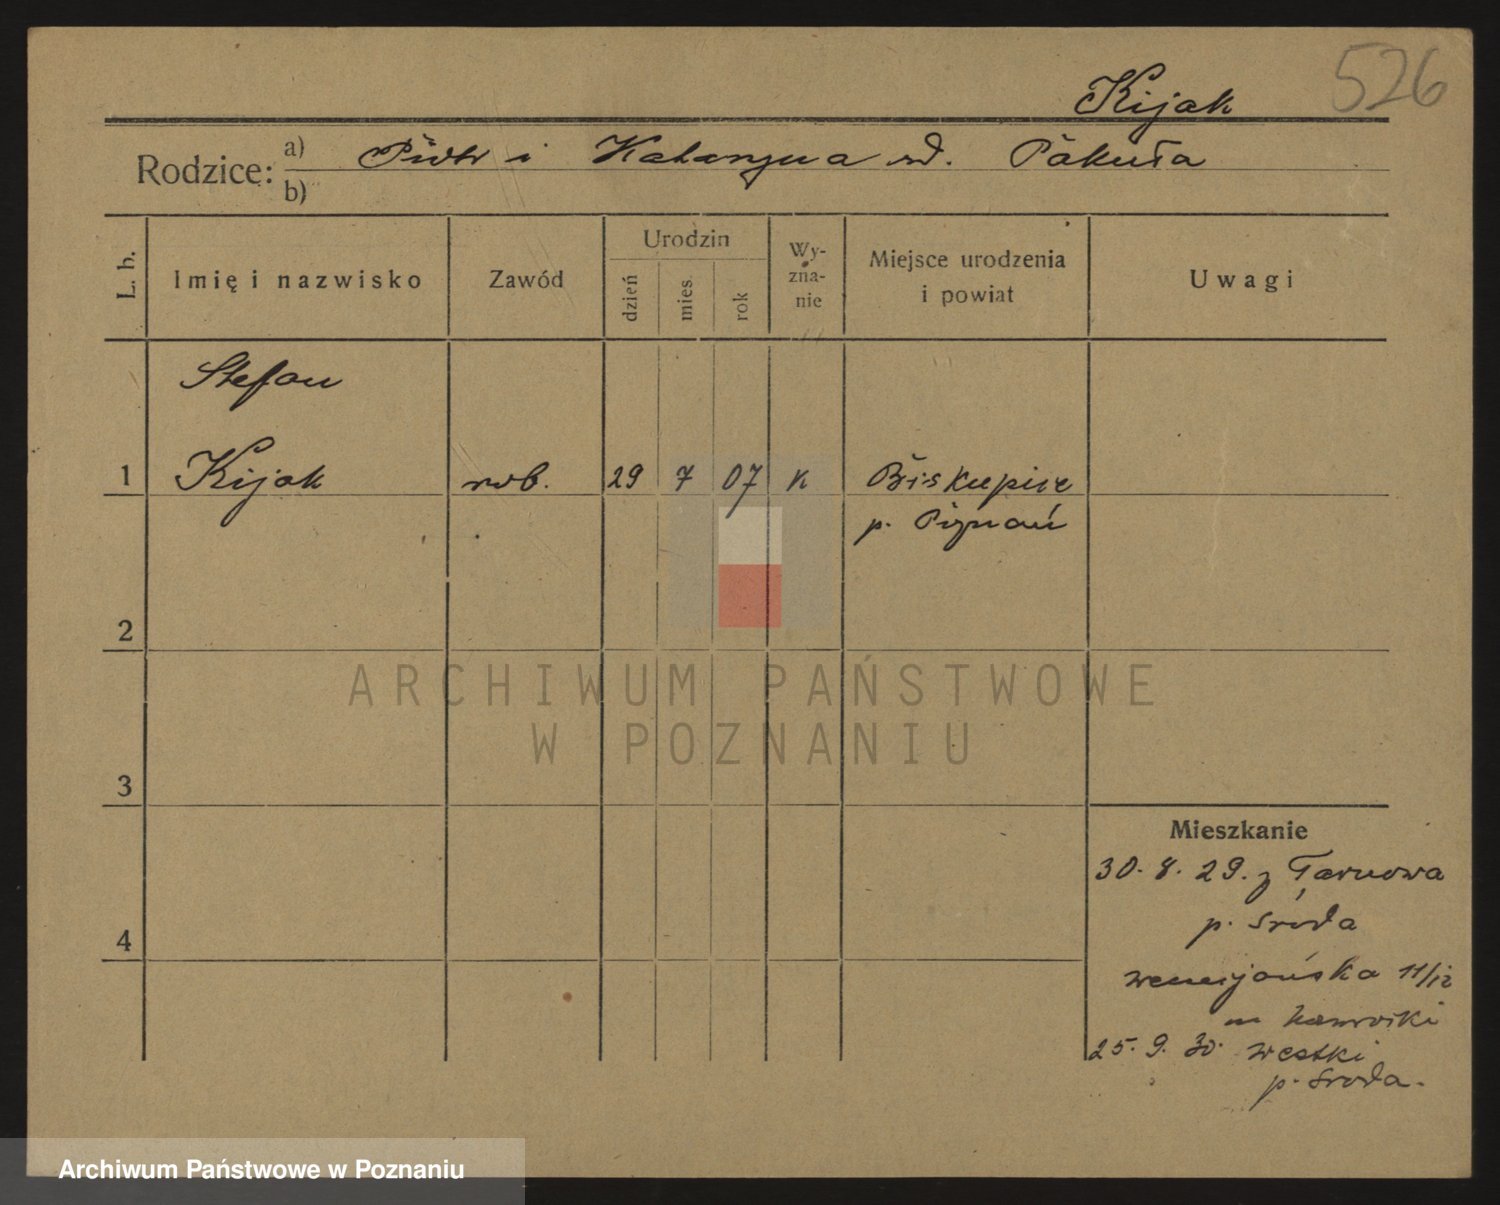 526
Kijak
Rodzice: a) Piotr i Katarzyna rd. Pakuła
b)
L. b.
Imię i nazwisko
Zawód
Urodzin
dzień
mies.
rok
Wy-
zna-
nie
Miejsce urodzenia
i powiat
Uwagi
Stefan
1 Kijak rob. 29 7 07 k Biskupice
p. Poznań
2
ARCHIWUM PAŃSTWOWE
W POZNANIU
3
Mieszkanie
30. 8. 29. z Tarnowa
p. Środa
4
wenecjańska 11/12
m
25. 9. 30.
p. Środa.
Archiwum Państwowe w Poznaniu